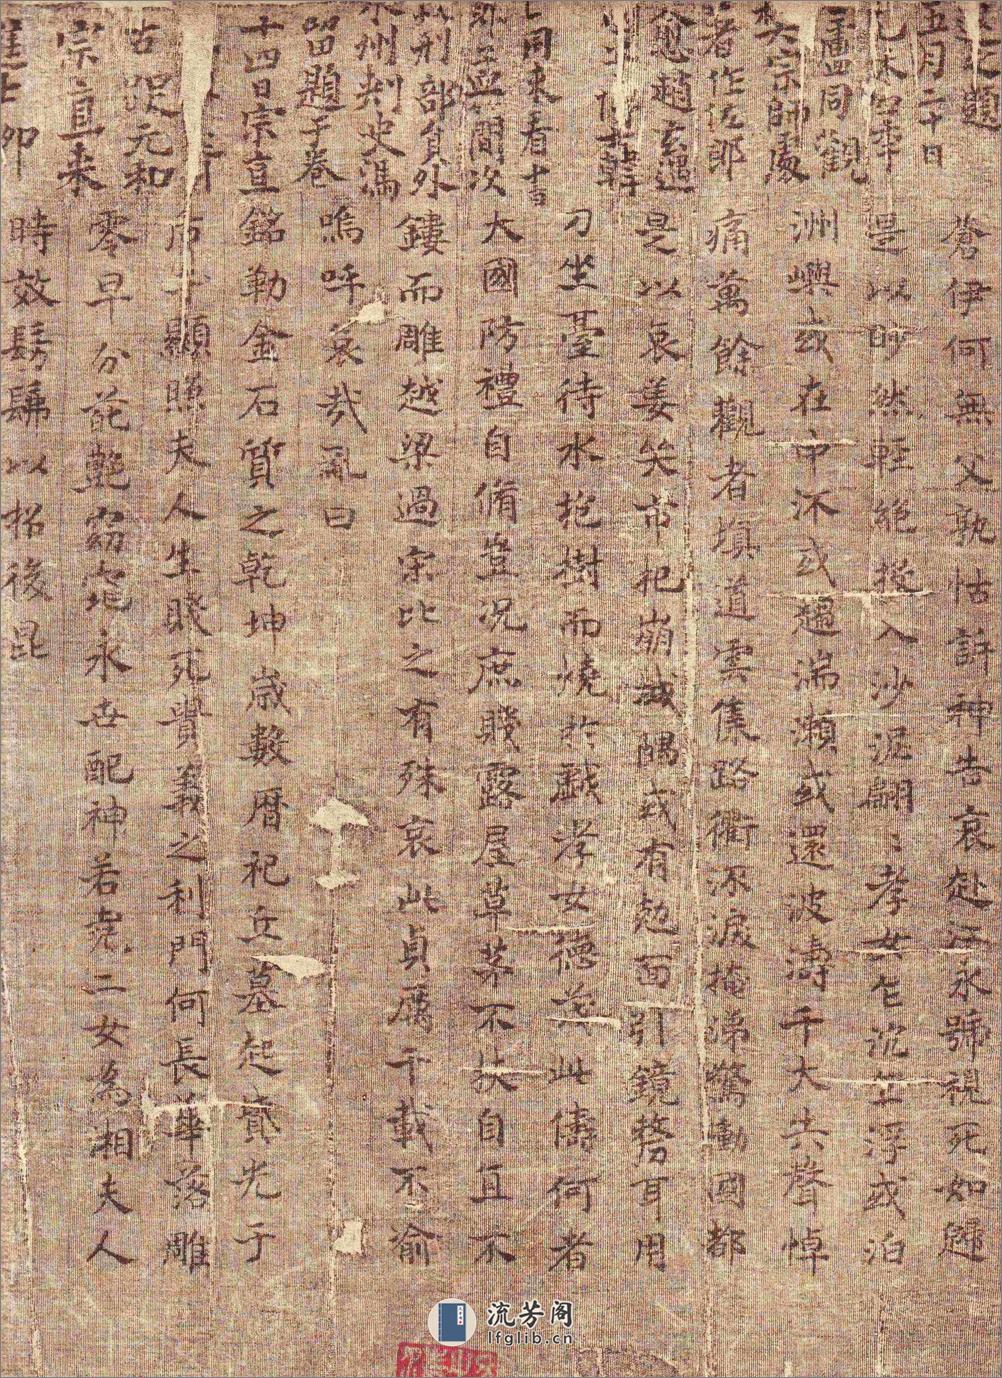 題
五月二十日
同觀
宗師處
著作佐郎
愈趙玄遇
韓
同来看
簡次
刑部負外
州刾史馮
留題于卷
十四日宗直
元和
宗直来
蒼伊何無父孰怙訴神告哀赴江永號視死如歸
是以眇然輕絕投入沙泥翩〻孝女乍沉乍浮或泊
洲嶼或在中沠或趍湍瀨或還波濤千夫共聲悼
痛萬餘觀者填道雲集路衢泝淚掩涕驚動國都
是以哀姜哭市杞崩城隅或有勊面引鏡剺耳用
刀坐臺待水抱樹而燒於戲孝女德茂此儔何者
大國防禮自脩豈況庶賤露屋草茅不扶自直不
鏤而雕越梁過宋比之有殊哀此貞厲千載不渝
嗚呼哀哉亂曰
銘勒金石質之乾坤歲數曆祀丘墓起墳光于
后土顯照夫人生賤死貴義之利門何長華落雕
零早分葩艷窈窕永世配神若堯二女為湘夫人
時效髣髴以招後昆
流芳阁
lfglib.cn